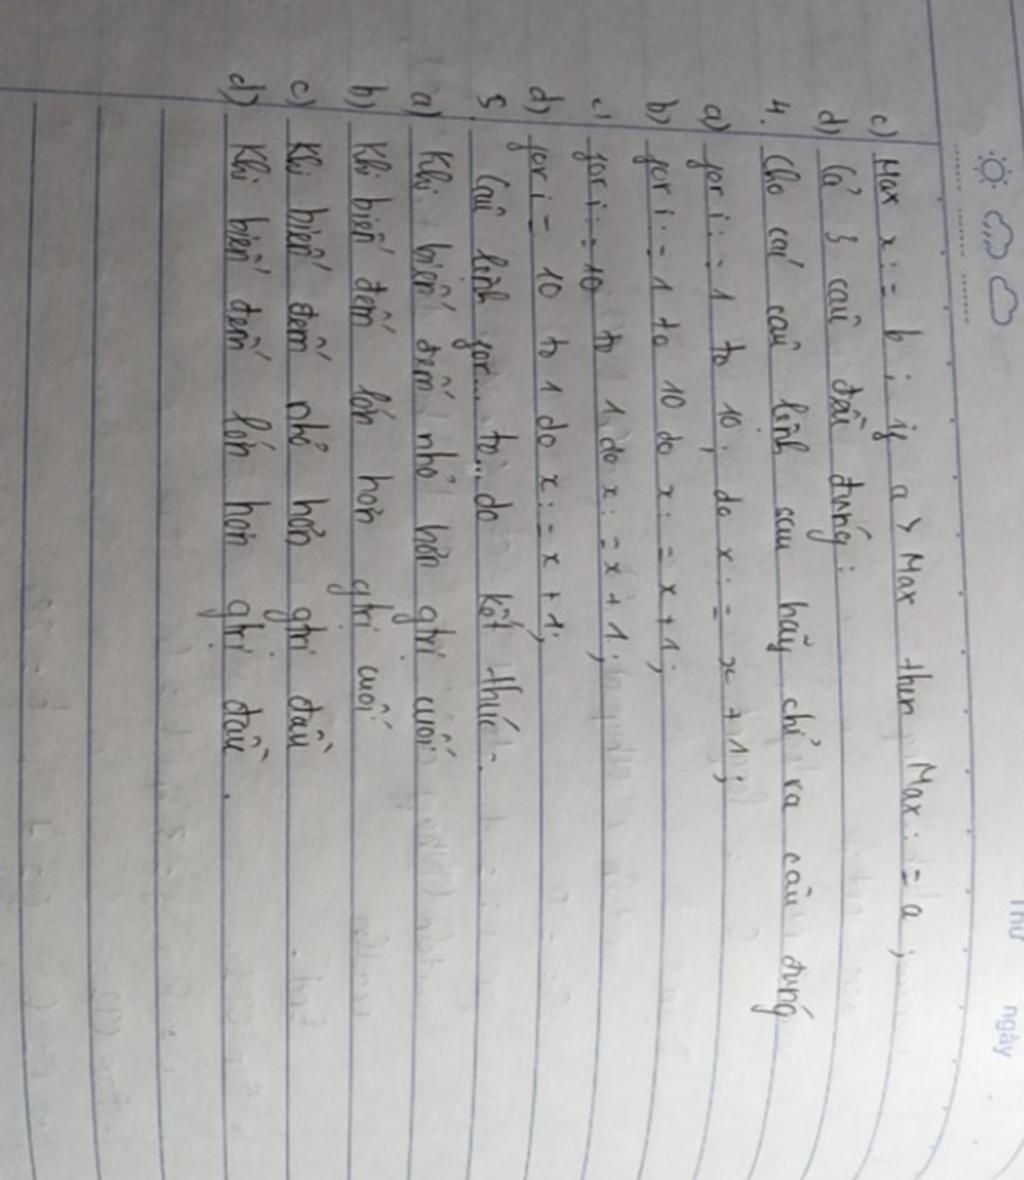 Thứ ngày
c) Max x := b ; if a > Max then Max := a ;
d) Cả 3 câu đều đúng :
4. Cho các câu lệnh sau hãy chỉ ra câu đúng
a) for i := 1 to 10 ; do x := x + 1 ;
b) for i := 1 to 10 do x := x + 1 ;
c) for i := 10 to 1 do x := x + 1 ;
d) for i = 10 to 1 do x := x + 1 ;
5. Câu lệnh for... to... do kết thúc :
a) Khi biến đếm nhỏ hơn gtrị cuối
b) Khi biến đếm lớn hơn gtrị cuối
c) Khi biến đếm nhỏ hơn gtri đầu
d) Khi biến đếm lớn hơn gtrị đầu .